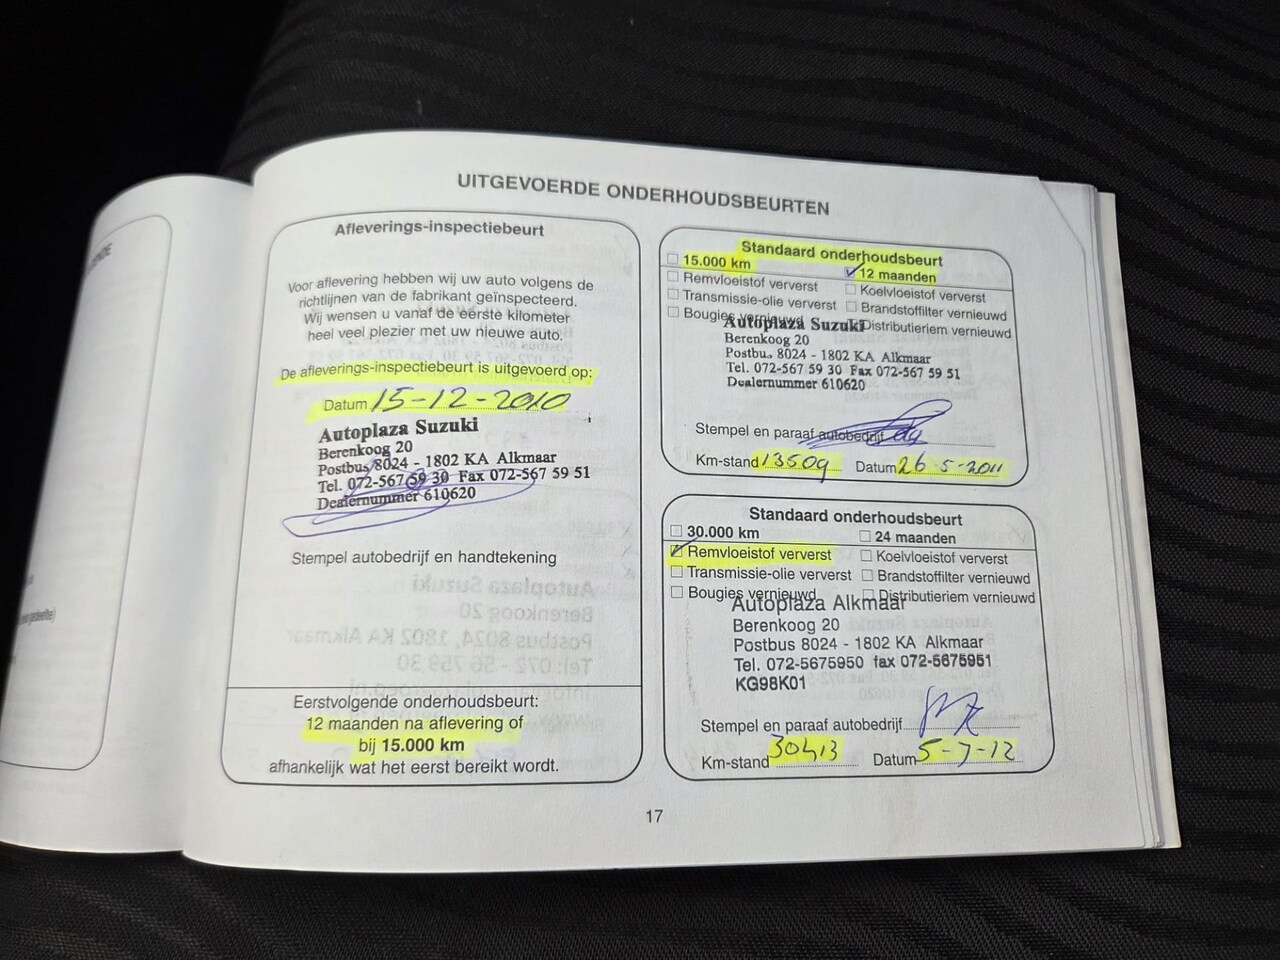 UITGEVOERDE ONDERHOUDSBEURTEN
Afleverings-inspectiebeurt
Voor aflevering hebben wij uw auto volgens de
richtlijnen van de fabrikant geïnspecteerd.
Wij wensen u vanaf de eerste kilometer
heel veel plezier met uw nieuwe auto.
De afleverings-inspectiebeurt is uitgevoerd op:
Datum 15-12-2010
Autoplaza Suzuki
Berenkoog 20
Postbus 8024 - 1802 KA Alkmaar
Tel. 072-567 59 30 Fax 072-567 59 51
Dealernummer 610620
Stempel autobedrijf en handtekening
Eerstvolgende onderhoudsbeurt:
12 maanden na aflevering of
bij 15.000 km
afhankelijk wat het eerst bereikt wordt.
Standaard onderhoudsbeurt
15.000 km 12 maanden
Remvloeistof ververst Koelvloeistof ververst
Transmissie-olie ververst Brandstoffilter vernieuwd
Bougies vernieuwd Distributieriem vernieuwd
Autoplaza Suzuki
Berenkoog 20
Postbus 8024 - 1802 KA Alkmaar
Tel. 072-567 59 30 Fax 072-567 59 51
Dealernummer 610620
Stempel en paraaf autobedrijf
Km-stand 13509 Datum 26-5-2011
Standaard onderhoudsbeurt
30.000 km 24 maanden
Remvloeistof ververst Koelvloeistof ververst
Transmissie-olie ververst Brandstoffilter vernieuwd
Bougies vernieuwd Distributieriem vernieuwd
Autoplaza Alkmaar
Berenkoog 20
Postbus 8024 - 1802 KA Alkmaar
Tel. 072-5675950 fax 072-5675951
KG98K01
Stempel en paraaf autobedrijf
Km-stand 30413 Datum 5-7-12
17